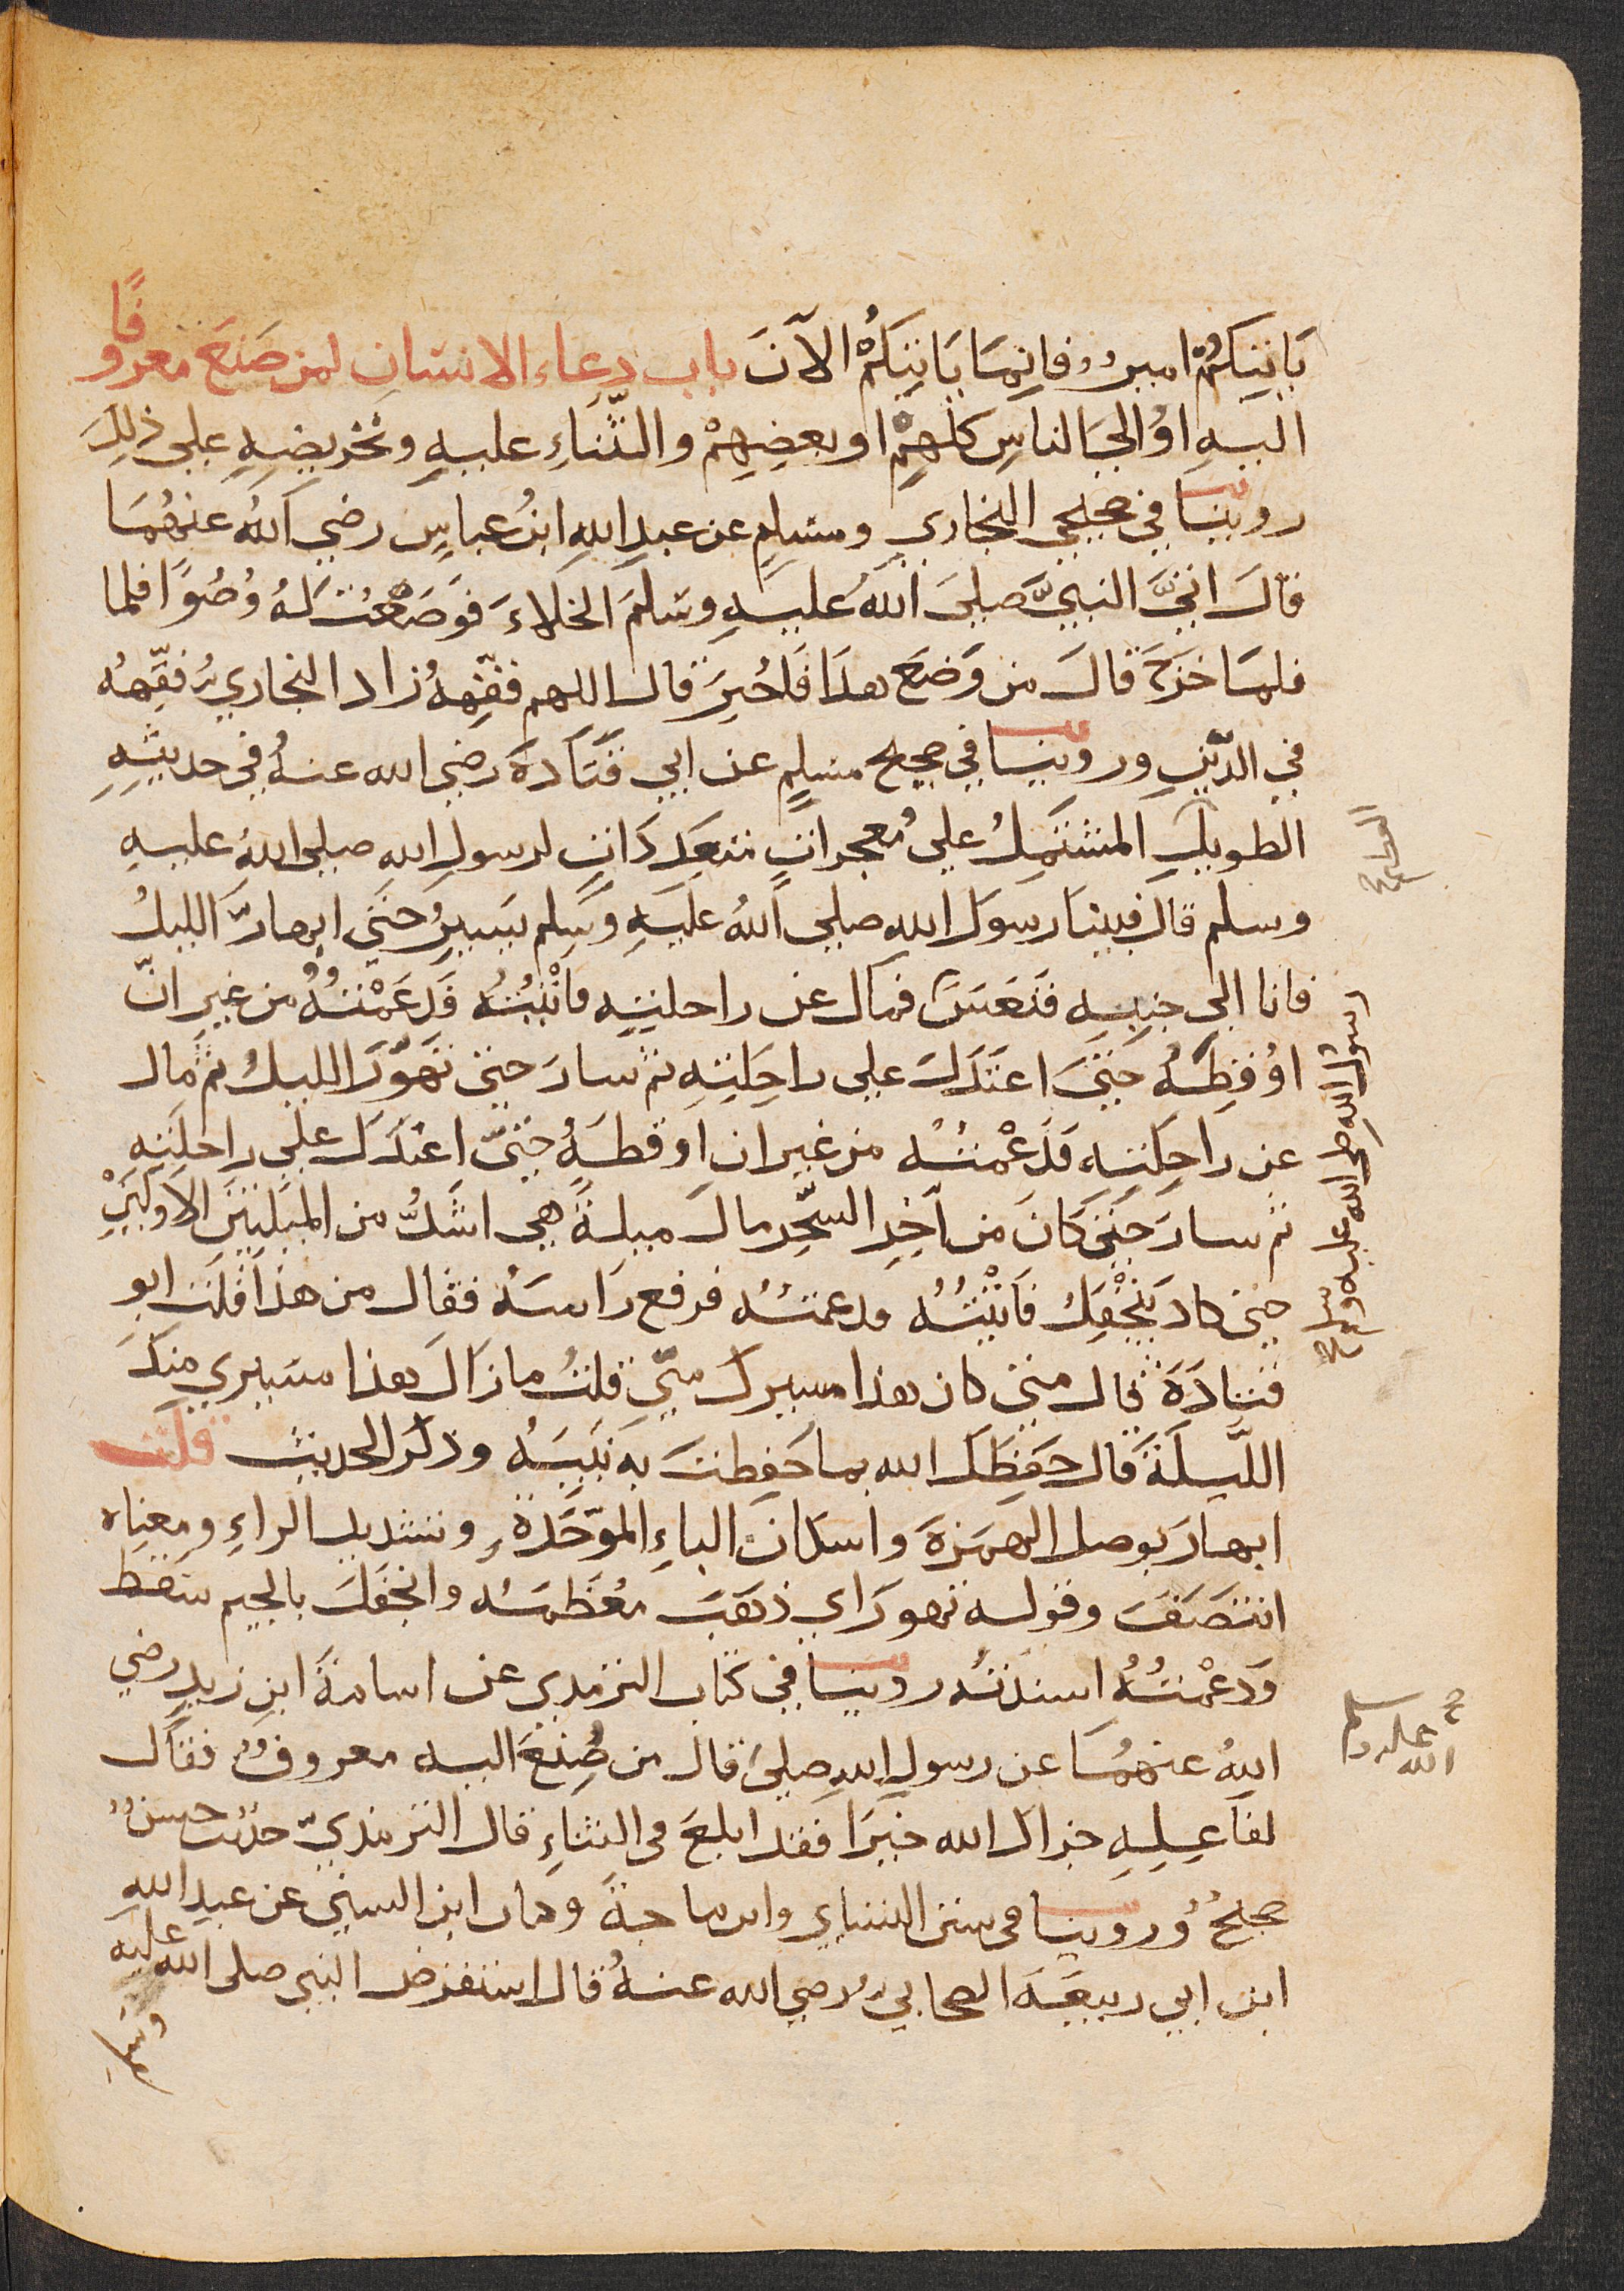 يَاتِيَكُمْ امير فانما يَاتِيكُمْ الآنَ باب دعاء الانسان لمن صَنَعَ معروفًا
اليهِ اوْ الى الناسِ كلهِمْ او بعضِهِمْ والثَّناءِ عليهِ وتحريضِهِ على ذلِكَ
روينا في صحيحي البخاري ومسلمٍ عن عبدِ اللهِ ابنُ عباسٍ رضي اللهُ عنهُمَا
قالَ اتىَ النبيَّ صلىَ اللهُ عليهِ وسَلمَ الخلاءَ فوَضَعْتُ لهُ وُضُوًا فلما
فلمَا خرَجَ قالَ من وَضَعَ هذَا فَاخُبِرَ قال اللهم فقِّههُ زاد البخاري فقِّههُ
في الدِّينِ وروينا في صحيح مسلمٍ عن ابي قتَادةَ رضي الله عنهُ في حديثِهِ
الطويلِ المشتمِلُ على مُعجزاتٍ متعَدِدَاتٍ لرسولِ اللهِ صلى اللهُ عليهِ
وسلم قال فبينا رسولَ الله صلى اللهُ عليهِ وسَلم يسيرُ حتى ابهارَّ الليلُ
فانا الى جنبِهِ فنَعَسَ فمال عن راحلتِهِ فاتْيتُهُ فَدَعَمْتُهُ من غيرِ انّ
اوْقِظَهُ حتىَ اعتَدَلَ على راحِلتِهِ ثم سارَ حتى تهوَّرَ الليلُ ثم مال
عن راحِلتِهِ فَدَعْمتُهُ من غير ان اوقظهُ حتىّ اعتدَلَ على راحلتِهِ
ثم سارَ حتى كانَ من آخِرِ السَّحَرِ مالَ ميلةً هي اشَدُّ من الميلتينَ الاولَيَيْنِ
حتى كاد ينْجفِلُ فاتيْتُهُ فدعمتُهُ فرفع رَاسَهُ فقال من هذَا قلت ابو
قتادَةَ قال متى كان هذا مسيرك منّي قلتُ ما زالَ هذا مَسيري منكَ
اللَّيلةَ قال حفِظَكَ الله بما حَفِظتَ به نَبِيَهُ وذكر الحديث قلت
ابهارَ بوصل الهمَزةَ واسكان الباءِ الموَّحَدةِ وتشديد الراءِ ومعناه
انتَصَفَ وقوله تهورَ اي ذهَبَ مُعْظَمَهُ وانجَفَلَ بالجيم سَقط
وَدعْمتُهُ اسندتُه روينا في كتاب الترمذي عن اسامةَ ابنِ زيدٍ رضي
اللهُ عنهمُا عن رسولِ اللهِ صلىَ قال من صُنِعَ اليه معروف فقال
لفاعِلِهِ جزاك الله خيرًا فقد ابلغَ في الثناءِ قال الترمذيّ حديث حسن
صحيحٌ وروينا في سنن النساي وابن ماجةَ وكتاب ابن السني عن عبدِ اللهِ
ابن ابي ربيعَةَ الصحابي رضي الله عنهُ قال استقرض النبي صلى الله عليه
وسلم
الطويل صح
رسول الله صلى الله عليه وسلم صح
الله عليه وسلم